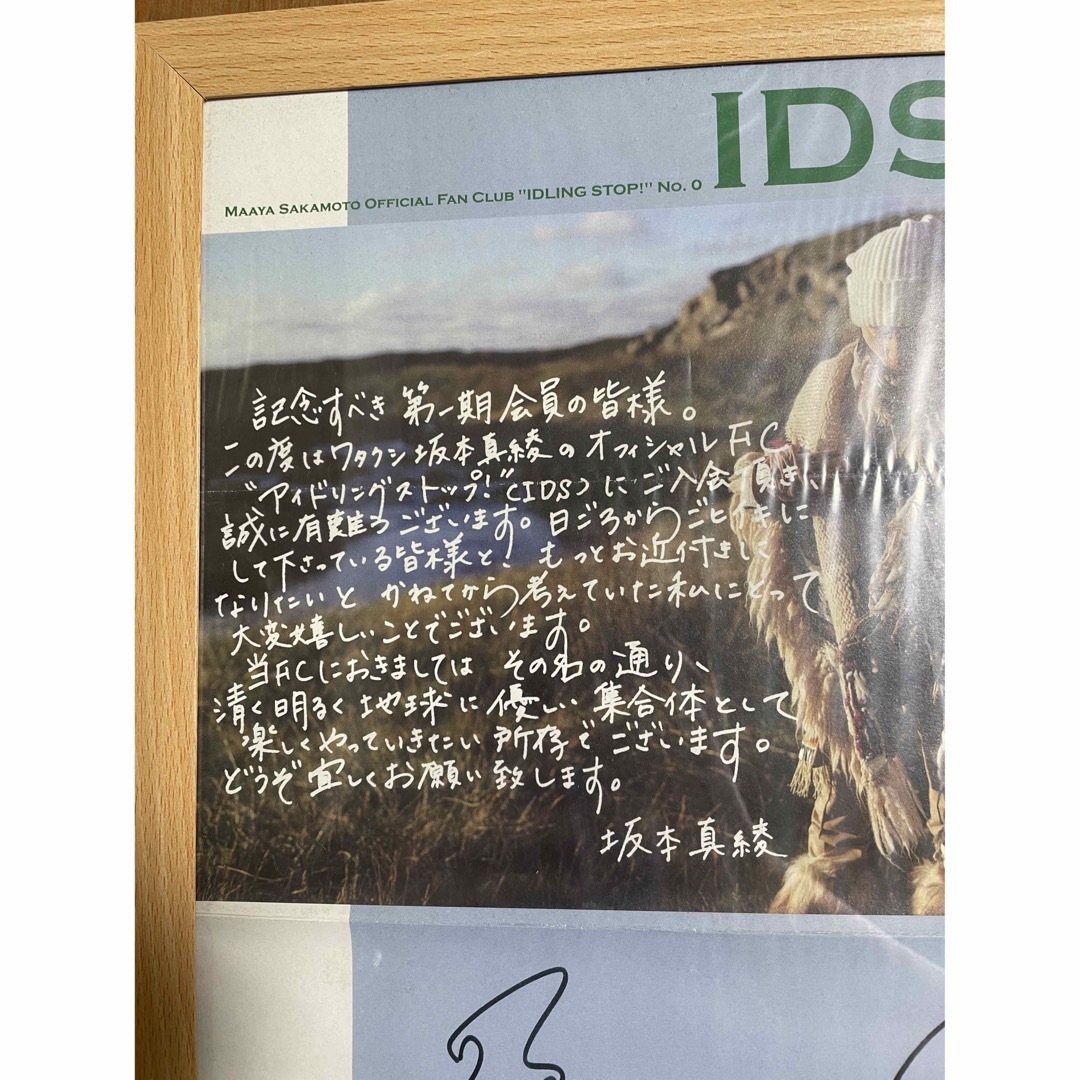 IDS
MAAYA SAKAMOTO OFFICIAL FAN CLUB "IDLING STOP!" NO. 0
記念すべき 第一期会員の皆様。
この度はワタクシ坂本真綾のオフィシャルFC
"アイドリングストップ!"(IDS)にご入会頂き、
誠に有難うございます。日ごろからごヒイキに
して下さっている皆様と、もっとお近付きに
なりたいと かねてから考えていた私にとって
大変嬉しいことでございます。
当FCにおきましては その名の通り、
清く明るく地球に優しい集合体として
楽しくやっていきたい所存でございます。
どうぞ宜しくお願い致します。
坂本真綾